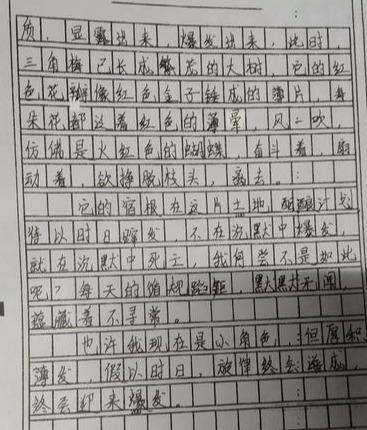 质,显露出来,爆发出来,此时,
三角梅已长成繁茂的大树,它的红
色花瓣像红色金子锤成的薄片,每
朵花都泛着红色的薄晕,风一吹,
仿佛是火红色的蝴蝶,奋斗着,扇
动着,欲挣脱枝头,离去。
它的宿根在这片土地,酝酿计划
待以时日蹿发,不在沉默中爆发,
就在沉默中死亡,我何尝不是如此
呢?每天的循规蹈矩,默默无闻,
蕴藏着不寻常。
也许我现在是小角色,但厚积
薄发,假以时日,旋律终会谱成,
终会迎来爆发。